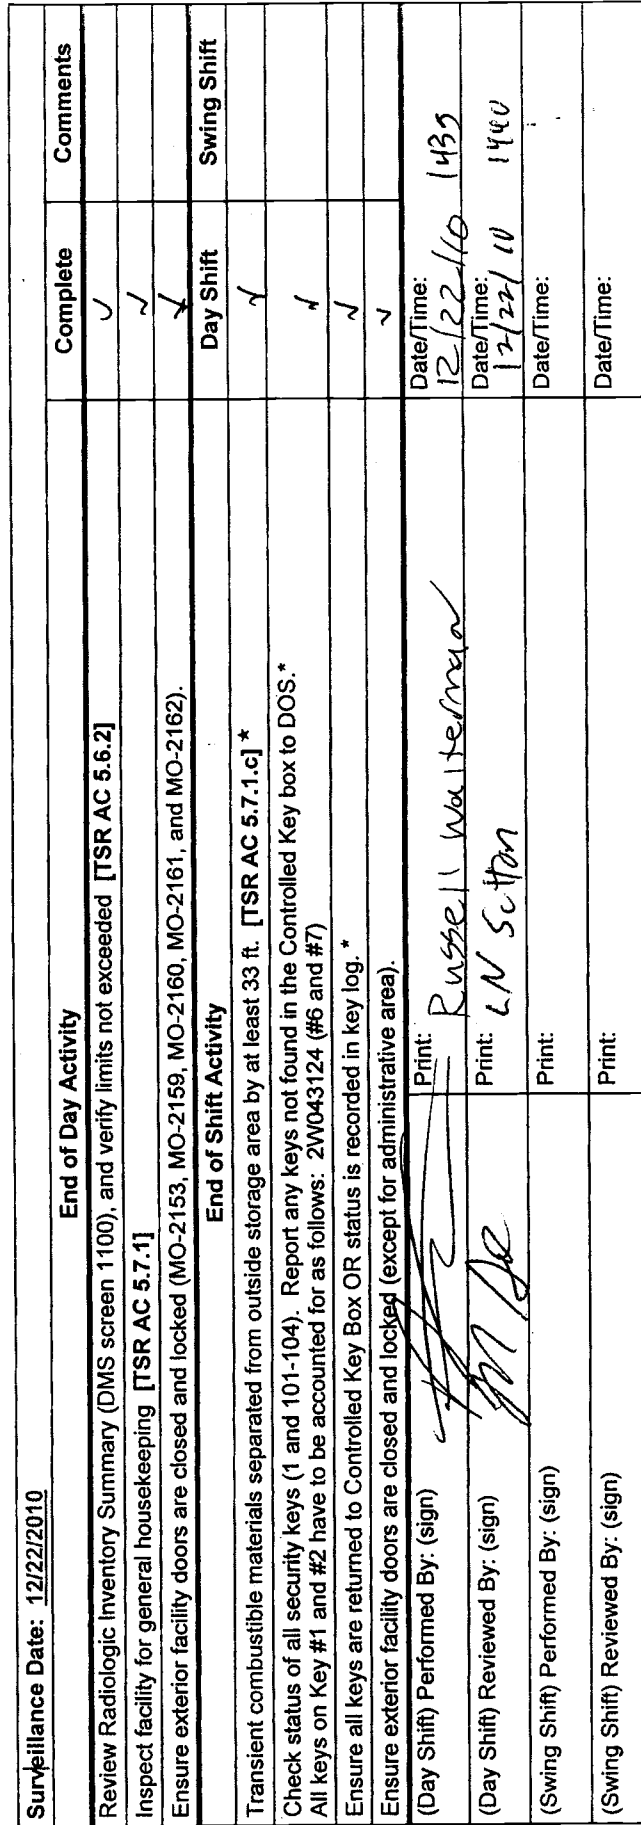 Surveillance Date: 12/22/2010
End of Day Activity Complete Comments
Review Radiologic Inventory Summary (DMS screen 1100), and verify limits not exceeded [TSR AC 5.6.2] ✓
Inspect facility for general housekeeping [TSR AC 5.7.1] ✓
Ensure exterior facility doors are closed and locked (MO-2153, MO-2159, MO-2160, MO-2161, and MO-2162). ✓
End of Shift Activity Day Shift Swing Shift
Transient combustible materials separated from outside storage area by at least 33 ft. [TSR AC 5.7.1.c] * ✓
Check status of all security keys (1 and 101-104). Report any keys not found in the Controlled Key box to DOS.* ✓
All keys on Key #1 and #2 have to be accounted for as follows: 2W043124 (#6 and #7)
Ensure all keys are returned to Controlled Key Box OR status is recorded in key log. * ✓
Ensure exterior facility doors are closed and locked (except for administrative area). ✓
(Day Shift) Performed By: (sign) Print: Russell Walterman Date/Time:
12/22/10 1435
(Day Shift) Reviewed By: (sign) Print: LN Sutton Date/Time:
12/22/10 1440
(Swing Shift) Performed By: (sign) Print: Date/Time:
(Swing Shift) Reviewed By: (sign) Print: Date/Time: